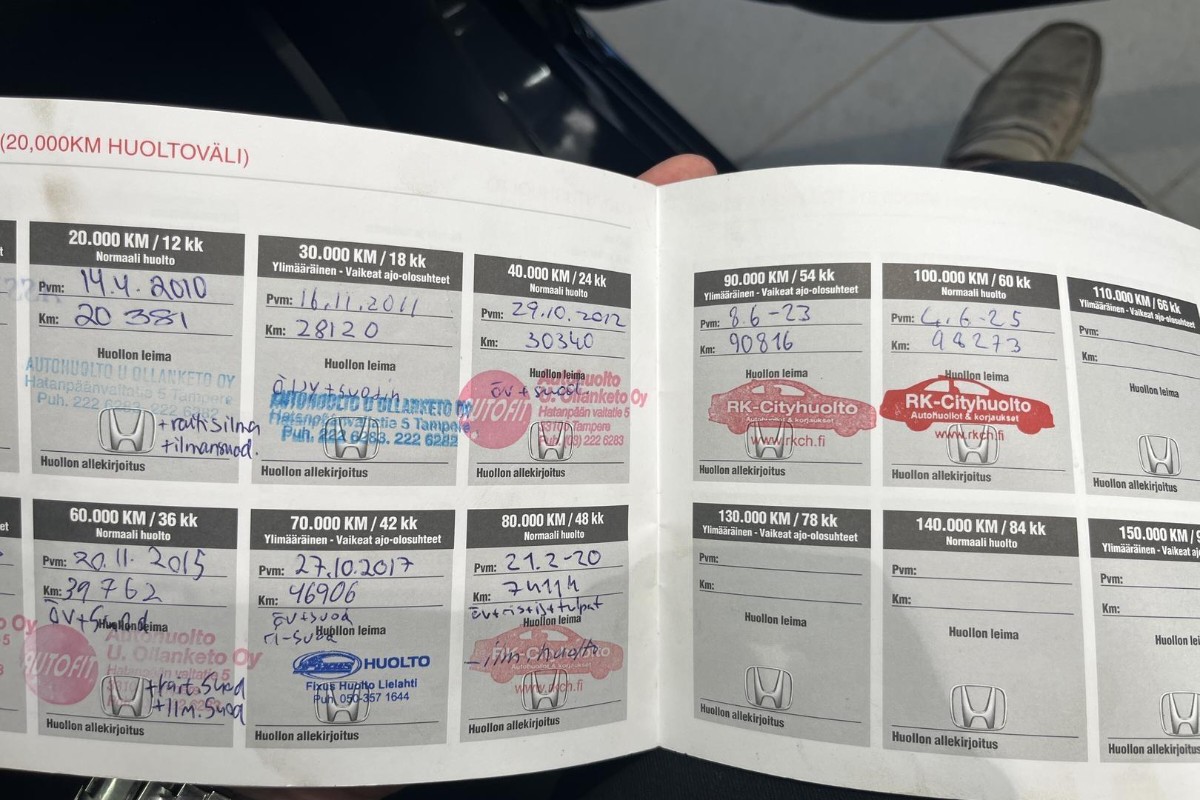 (20,000KM HUOLTOVÄLI)
20.000 KM / 12 kk
Normaali huolto
Pvm: 14.4.2010
Km: 20 381
Huollon leima
AUTOHUOLTO U OLLANKETO OY
Hatanpäänvaltatie 5 Tampere
Puh. 222 6283, 222 6282
+raitisilma
+ilmansuod.
Huollon allekirjoitus
30.000 KM / 18 kk
Ylimääräinen - Vaikeat ajo-olosuhteet
Pvm: 16.11.2011
Km: 28120
Huollon leima
AUTOHUOLTO U OLLANKETO OY
Hatanpäänvaltatie 5 Tampere
Puh. 222 6283. 222 6282
Huollon allekirjoitus
40.000 KM / 24 kk
Normaali huolto
Pvm: 29.10.2012
Km: 30340
Huollon leima
öv + suod
AUTOFIT
Autohuolto
U. Ollanketo Oy
Hatanpään valtatie 5
Tampere
(03) 222 6283
Huollon allekirjoitus
90.000 KM / 54 kk
Ylimääräinen - Vaikeat ajo-olosuhteet
Pvm: 8.6-23
Km: 90816
Huollon leima
RK-Cityhuolto
Autohuollot & korjaukset
www.rkch.fi
Huollon allekirjoitus
100.000 KM / 60 kk
Normaali huolto
Pvm: 4.6-25
Km: 98273
Huollon leima
RK-Cityhuolto
Autohuollot & korjaukset
www.rkch.fi
Huollon allekirjoitus
110.000 KM / 66 kk
Ylimääräinen - Vaikeat ajo-olosuhteet
Pvm:
Km:
Huollon leima
Huollon allekirjoitus
60.000 KM / 36 kk
Normaali huolto
Pvm: 20.11.2015
Km: 39762
öv+suod
Huollon leima
AUTOFIT
Autohuolto
U. Ollanketo Oy
Hatanpään valtatie 5
+rait.suod
+ilm.suod
Huollon allekirjoitus
70.000 KM / 42 kk
Ylimääräinen - Vaikeat ajo-olosuhteet
Pvm: 27.10.2017
Km: 46906
öv+suod
ri-suod
Huollon leima
Fixus HUOLTO
Fixus Huolto Lielahti
Puh. 050-357 1644
Huollon allekirjoitus
80.000 KM / 48 kk
Normaali huolto
Pvm: 21.2-20
Km: 74114
Huollon leima
RK-Cityhuolto
Autohuollot & korjaukset
www.rkch.fi
Huollon allekirjoitus
130.000 KM / 78 kk
Ylimääräinen - Vaikeat ajo-olosuhteet
Pvm:
Km:
Huollon leima
Huollon allekirjoitus
140.000 KM / 84 kk
Normaali huolto
Pvm:
Km:
Huollon leima
Huollon allekirjoitus
150.000 KM
Ylimääräinen - Vaikeat
Pvm:
Km:
Huollon
Huollon allekirjoitus